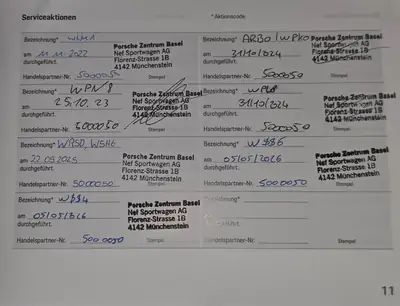 Serviceaktionen
* Aktionscode
Bezeichnung* WLM1
am 11.11.2022
durchgeführt.
Handelspartner-Nr. 5000050
Porsche Zentrum Basel
Nef Sportwagen AG
Florenz-Strasse 1B
4142 Münchenstein
Stempel
Bezeichnung* ARB0/WPK0
am 31/10/2024
durchgeführt.
Handelspartner-Nr. 5000050
Porsche Zentrum Basel
Nef Sportwagen AG
Florenz-Strasse 1B
4142 Münchenstein
Stempel
Bezeichnung* WPN8
am 25.10.23
durchgeführt.
Handelspartner-Nr. 5000050
Porsche Zentrum Basel
Nef Sportwagen AG
Florenz-Strasse 1B
4142 Münchenstein
Bezeichnung*
am 31/10/2024
durchgeführt.
Handelspartner-Nr. 5000050
Porsche Zentrum Basel
Nef Sportwagen AG
Florenz-Strasse 1B
4142 Münchenstein
Stempel
Bezeichnung* WSH6
am 22.09.2025
durchgeführt.
Handelspartner-Nr. 5000050
Porsche Zentrum Basel
Nef Sportwagen AG
Florenz-Strasse 1B
4142 Münchenstein
Stempel
Bezeichnung*
am 05/05/2026
durchgeführt.
Handelspartner-Nr. 5000050
Porsche Zentrum Basel
Nef Sportwagen AG
Florenz-Strasse 1B
4142 Münchenstein
Stempel
Bezeichnung*
am 05/05/2026
durchgeführt.
Handelspartner-Nr. 5000050
Porsche Zentrum Basel
Nef Sportwagen AG
Florenz-Strasse 1B
4142 Münchenstein
Stempel
Bezeichnung*
durchgeführt.
Handelspartner-Nr.
Stempel
11